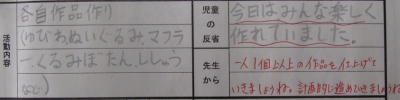 活動内容
各自作品作り
(ゆびわ、ぬいぐるみ、マフラ
ー、くるみぼたん、ししゅう
など)
児童の反省
今日はみんな楽しく
作れていました。
先生から
一人1個以上の作品を仕上げて
いきましょうね。計画的に進めていきましょうね